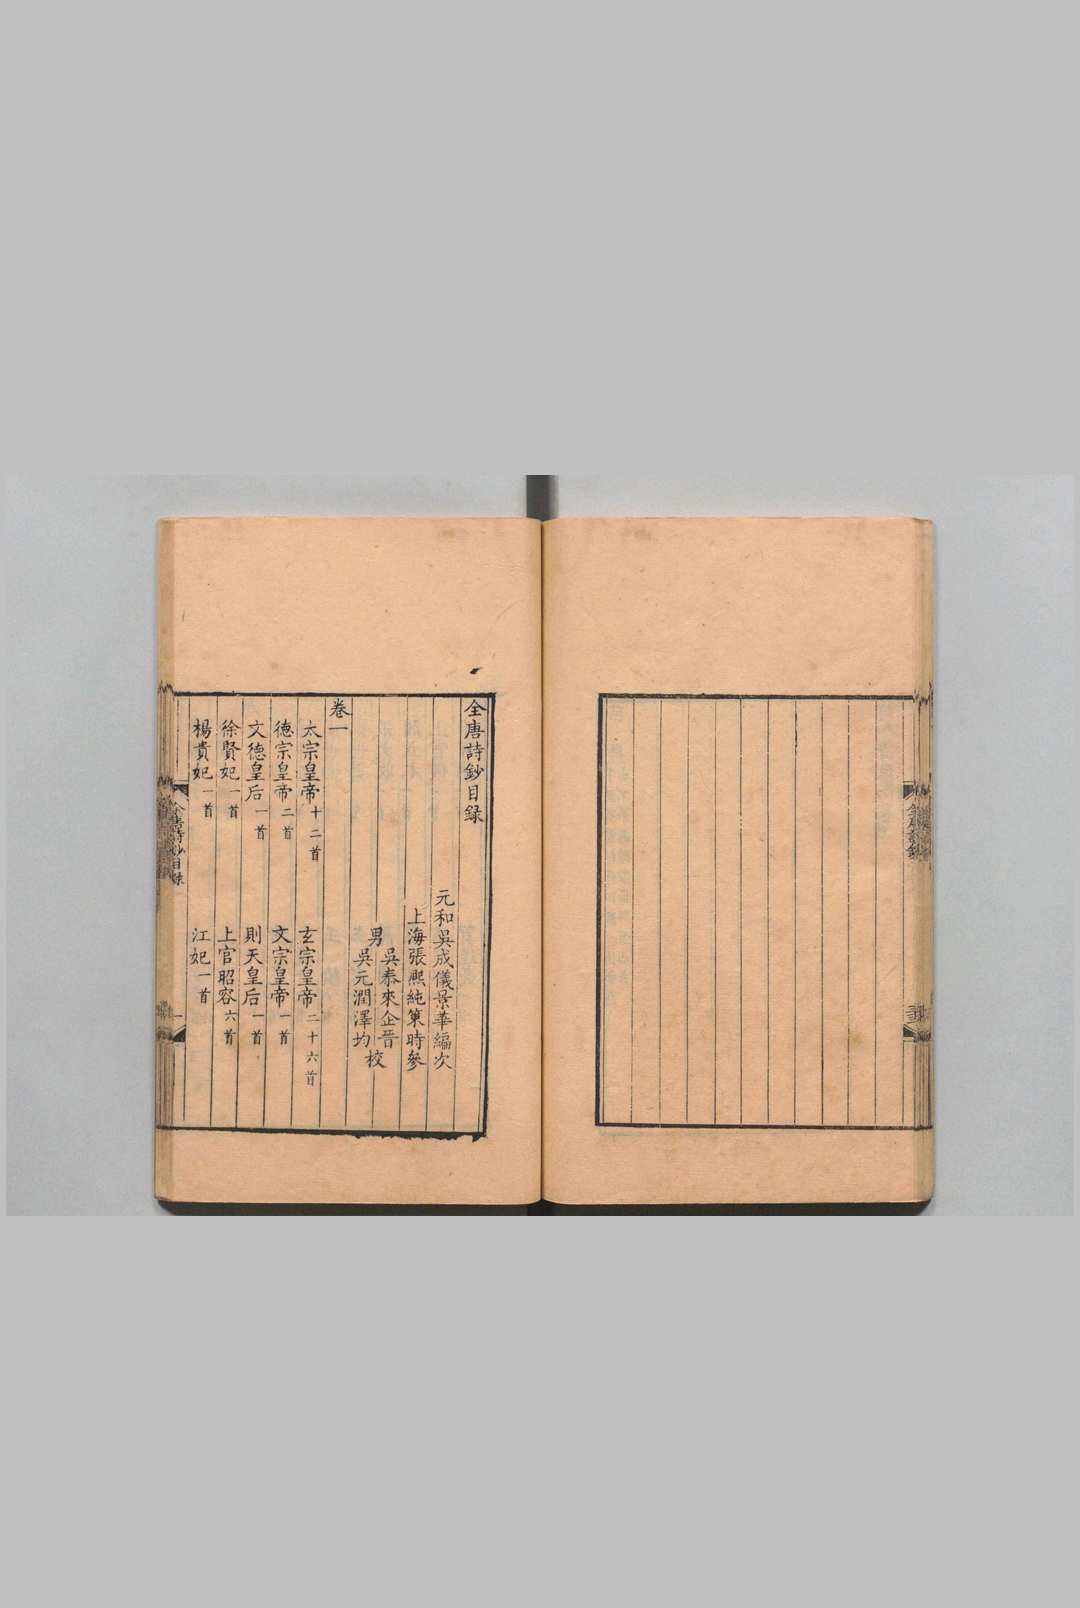 全唐詩鈔
全唐詩鈔目録
元和吳成儀景華編次
上海張熙純策時參
男
吳泰來企晉
吳元潤澤均
校
卷一
太宗皇帝十二首
玄宗皇帝二十六首
德宗皇帝二首
文宗皇帝一首
文德皇后一首
則天皇后一首
徐賢妃一首
上官昭容六首
楊貴妃一首
江妃一首
全唐詩鈔目録
一